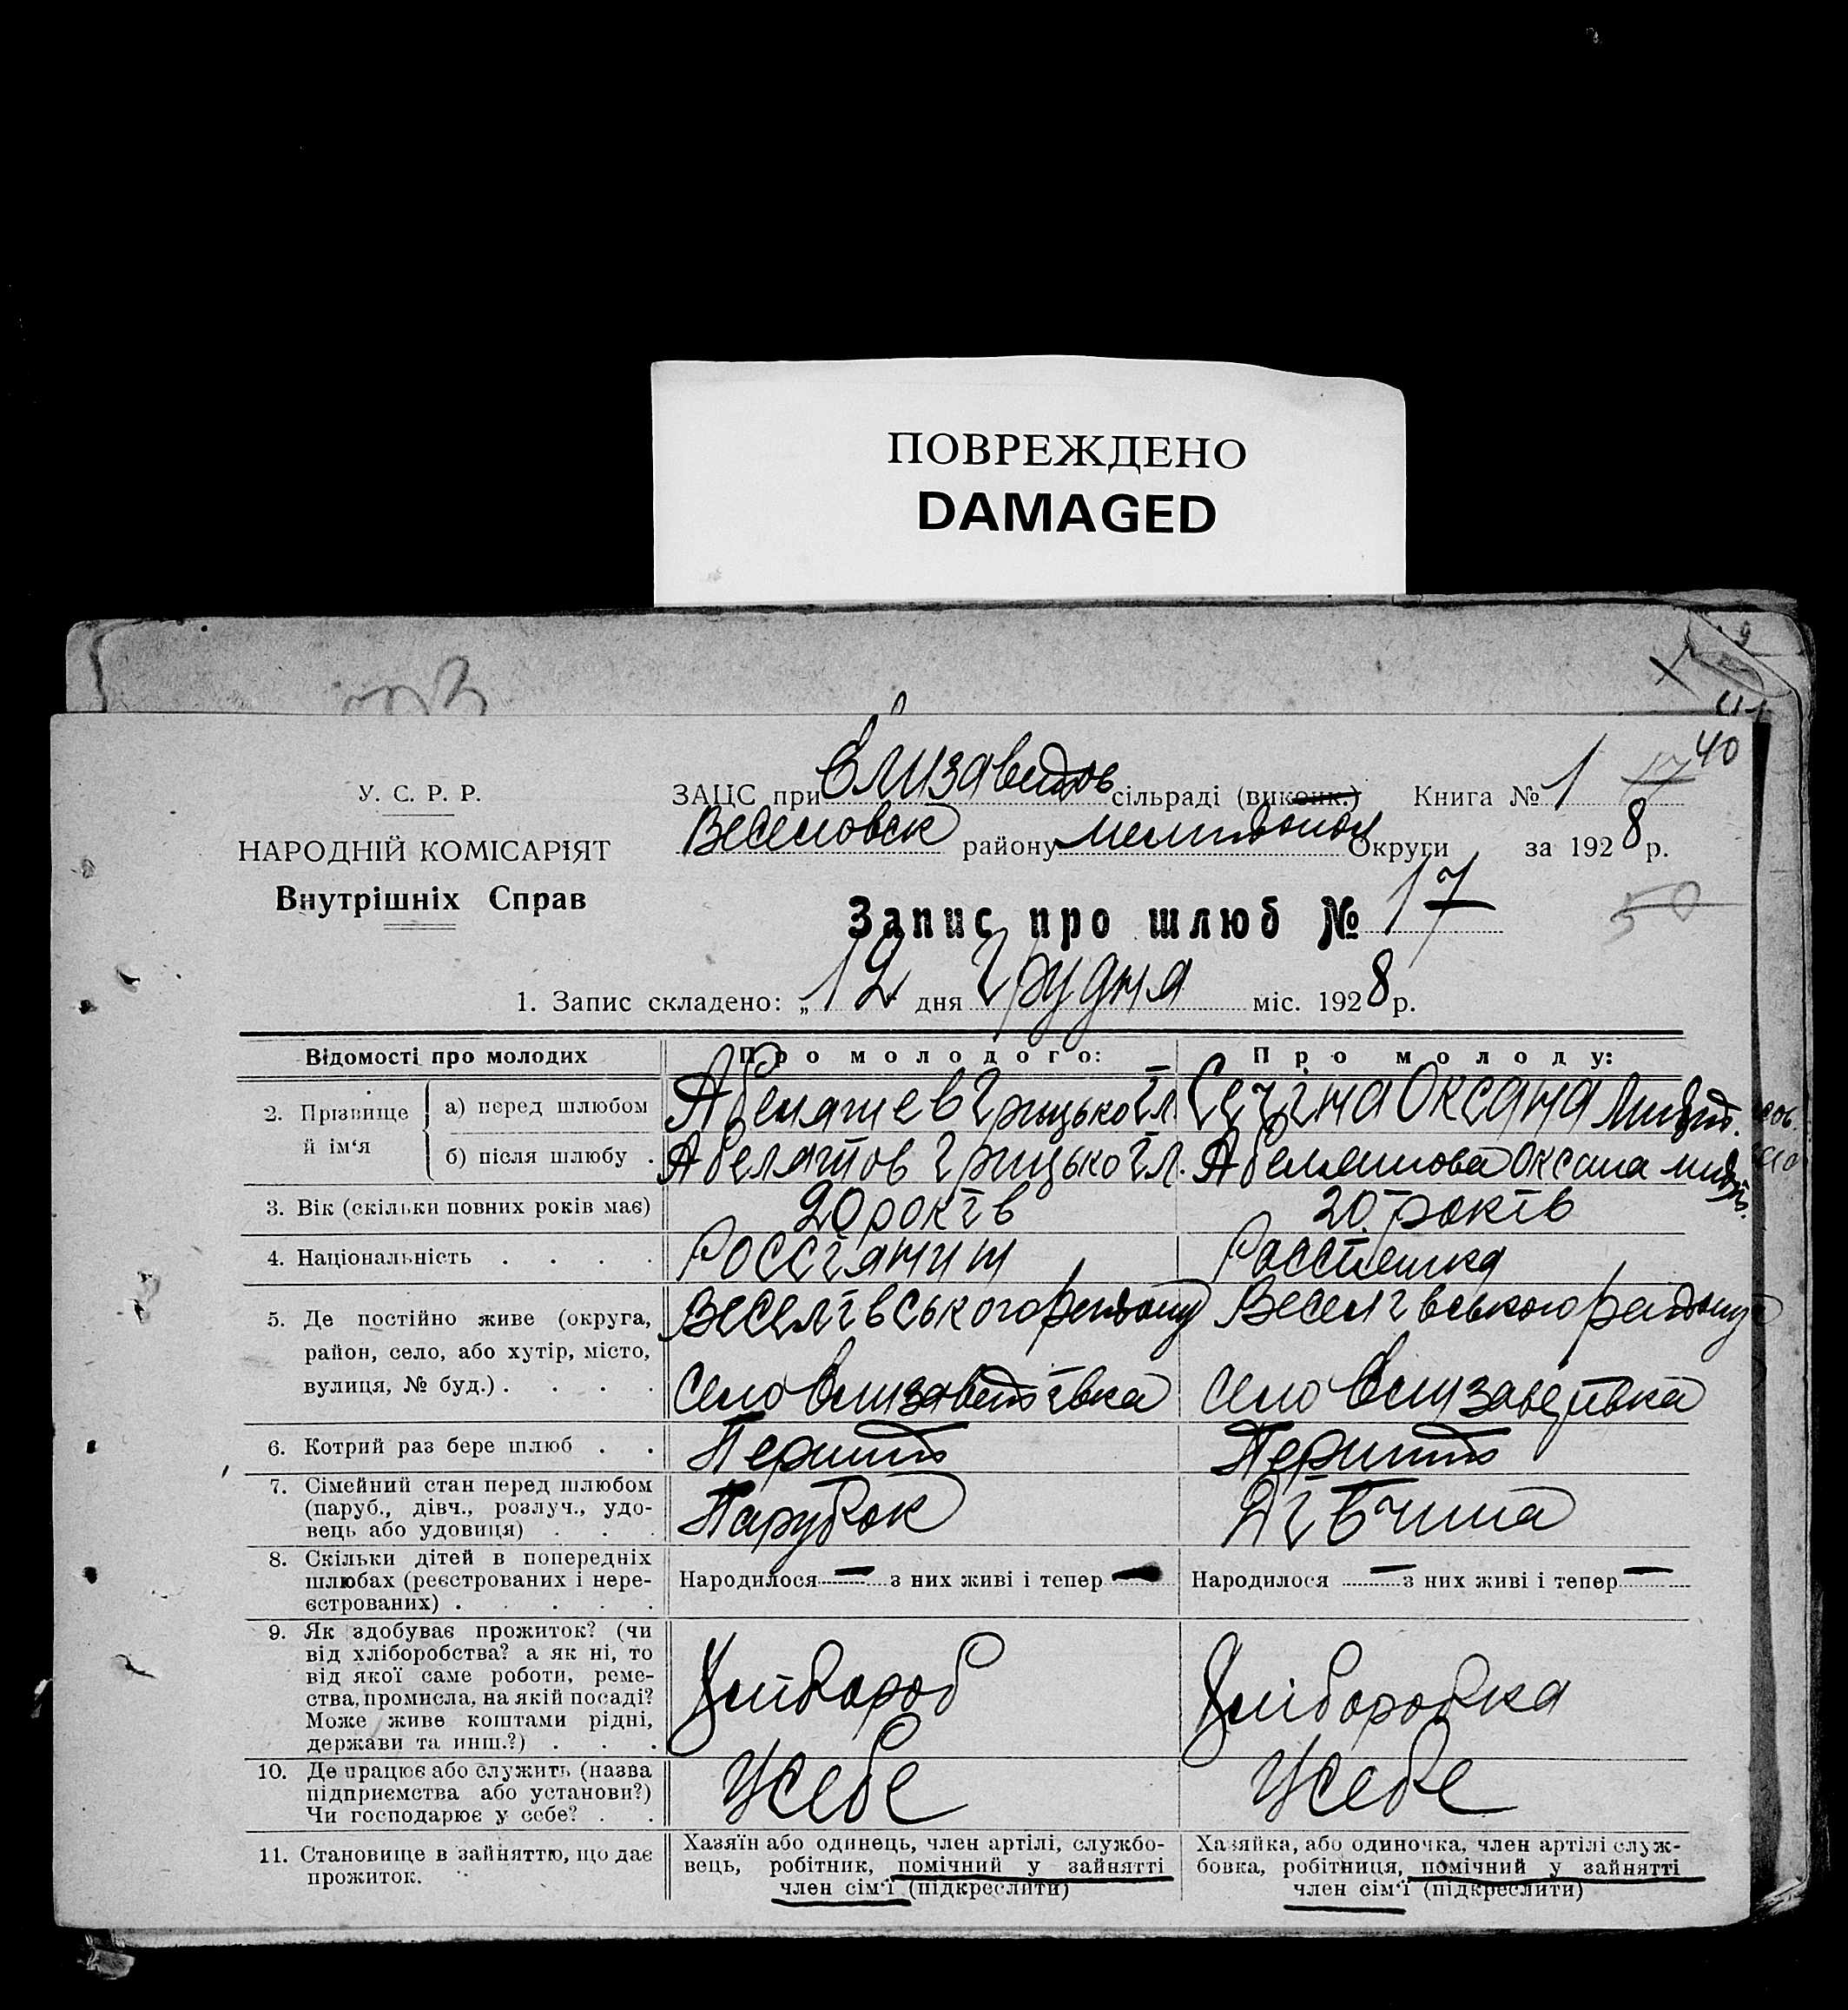 ПОВРЕЖДЕНО
DAMAGED
40
У. С. Р. Р.
НАРОДНІЙ КОМІСАРІЯТ
Внутрішніх Справ
ЗАЦС при Єлизаветов сільраді (виконк.) Книга № 1 17
Веселовск району Мелитополь Округи за 1928 р.
Запис про шлюб № 17
50
1. Запис складено: „12 дня Грудня міс. 1928 р.
Відомості про молодих Про молодого: Про молоду:
2. Прізвище й ім'я
а) перед шлюбом Абеляшев Грицько Іл. Сечіна Оксана
б) після шлюбу . Абеляшов Грицько Іл. Абеляшова Оксана
3. Вік (скільки повних років має) 20 років 20 років
4. Національність . . . . Россіянин Россіянка
5. Де постійно живе (округа, район, село, або хутір, місто, вулиця, № буд.) . . . .
Веселівського району Веселівського району
село Єлизаветівка село Єлизаветівка
6. Котрий раз бере шлюб . . Перший Перший
7. Сімейний стан перед шлюбом (паруб., дівч., розлуч., удовець або удовиця) . . . Парубок Дівчина
8. Скільки дітей в попередніх шлюбах (реєстрованих і нереєстрованих) . . . . .
Народилося — з них живі і тепер — Народилося — з них живі і тепер —
9. Як здобуває прожиток? (чи від хліборобства? а як ні, то від якої саме роботи, ремества, промисла, на якій посаді? Може живе коштами рідні, держави та инш.?) . . .
Хлібороб Хліборобка
10. Де працює або служить (назва підприємства або установи?) Чи господарює у себе? . .
У себе У себе
11. Становище в зайняттю, що дає прожиток.
Хазяїн або одинець, член артілі, службовець, робітник, помічний у зайнятті член сім'ї (підкреслити)
Хазяйка, або одиночка, член артілі службовка, робітниця, помічний у зайнятті член сім'ї (підкреслити)